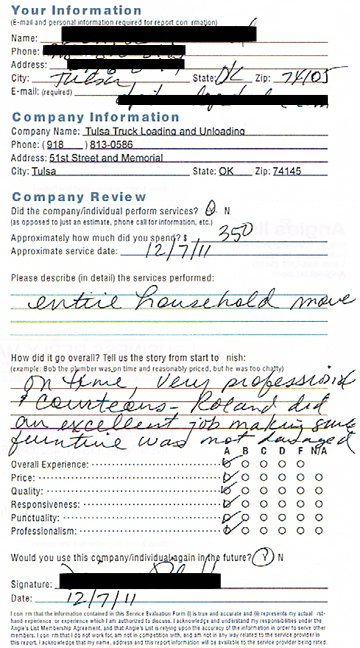 Your Information
(E-mail and personal information required for report con rmation)
Name:
Phone:
Address:
City: Tulsa State: OK Zip: 74105
E-mail: (required)
Company Information
Company Name: Tulsa Truck Loading and Unloading
Phone: ( 918 ) 813-0586
Address: 51st Street and Memorial
City: Tulsa State: OK Zip: 74145
Company Review
Did the company/individual perform services? Y N
(as opposed to just an estimate, phone call for information, etc.)
Approximately how much did you spend? $ 350
Approximate service date: 12/7/11
Please describe (in detail) the services performed:
entire household move
How did it go overall? Tell us the story from start to nish:
(example: Bob the plumber was on time and reasonably priced, but he was too chatty)
on time, very professional
& courteous - Roland did
an excellent job making sure
furniture was not damaged
A B C D F N/A
Overall Experience:
Price:
Quality:
Responsiveness:
Punctuality:
Professionalism:
Would you use this company/individual again in the future? Y N
Signature:
Date: 12/7/11
I con rm that the information contained in this Service Evaluation Form (i) is true and accurate and (ii) represents my actual rst-
hand experience, or experience which I am authorized to discuss. I acknowledge and understand my responsibilities under the
Angie's List Membership Agreement, and that Angie's List is relying upon the accuracy of the information in order to serve other
members. I con rm that I do not work for, am not in competition with, and am not in any way related to the service provider in
this report. I acknowledge that my name, address and this report information will be available to the service provider being rated.